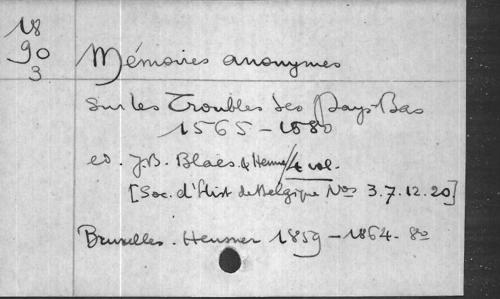 18
90
3
Mémoires anonymes
sur les Troubles des Pays-Bas
1565-1580
ed. J.B. Blaes & Henne/4 vol.
[Soc. d'Hist de Belgique Nos 3.7.12.20]
Bruxelles. Heusner 1859-1864-8o